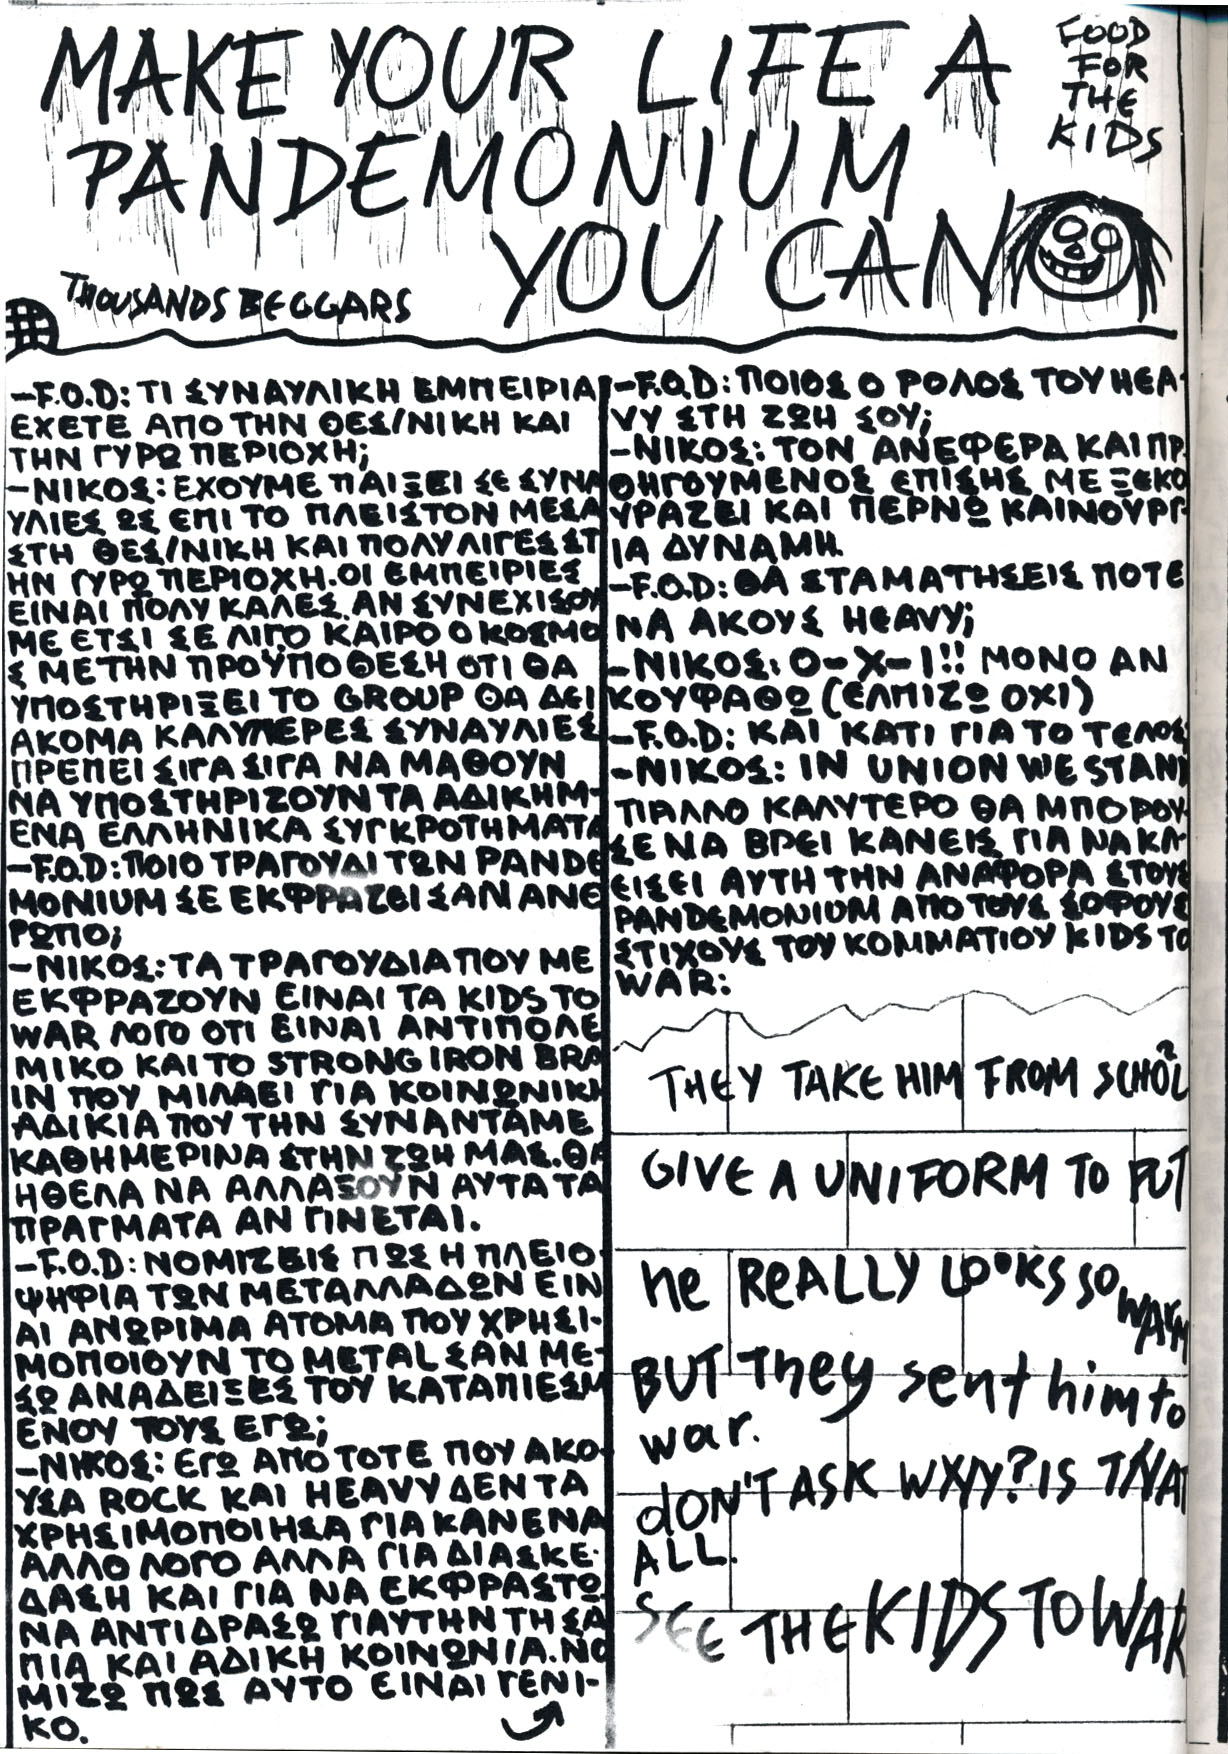 MAKE YOUR LIFE A
PANDEMONIUM
YOU CAN
FOOD
FOR
THE
KIDS
THOUSANDS BEGGARS
-F.O.D: ΤΙ ΣΥΝΑΥΛΙΚΗ ΕΜΠΕΙΡΙΑ
ΕΧΕΤΕ ΑΠΟ ΤΗΝ ΘΕΣ/ΝΙΚΗ ΚΑΙ
ΤΗΝ ΓΥΡΩ ΠΕΡΙΟΧΗ;
-ΝΙΚΟΣ: ΕΧΟΥΜΕ ΠΑΙΞΕΙ ΣΕ ΣΥΝΑ
ΥΛΙΕΣ ΩΣ ΕΠΙ ΤΟ ΠΛΕΙΣΤΟΝ ΜΕΣΑ
ΣΤΗ ΘΕΣ/ΝΙΚΗ ΚΑΙ ΠΟΛΥ ΛΙΓΕΣ ΣΤ
ΗΝ ΓΥΡΩ ΠΕΡΙΟΧΗ. ΟΙ ΕΜΠΕΙΡΙΕΣ
ΕΙΝΑΙ ΠΟΛΥ ΚΑΛΕΣ. ΑΝ ΣΥΝΕΧΙΣΟΥ
ΜΕ ΕΤΣΙ ΣΕ ΛΙΓΟ ΚΑΙΡΟ Ο ΚΟΣΜΟ
Σ ΜΕ ΤΗΝ ΠΡΟΫΠΟΘΕΣΗ ΟΤΙ ΘΑ
ΥΠΟΣΤΗΡΙΞΕΙ ΤΟ GROUP ΘΑ ΔΕΙ
ΑΚΟΜΑ ΚΑΛΥΤΕΡΕΣ ΣΥΝΑΥΛΙΕΣ
ΠΡΕΠΕΙ ΣΙΓΑ ΣΙΓΑ ΝΑ ΜΑΘΟΥΝ
ΝΑ ΥΠΟΣΤΗΡΙΖΟΥΝ ΤΑ ΑΔΙΚΗΜ-
ΕΝΑ ΕΛΛΗΝΙΚΑ ΣΥΓΚΡΟΤΗΜΑΤΑ
-F.O.D: ΠΟΙΟ ΤΡΑΓΟΥΔΙ ΤΩΝ PANDE
MONIUM ΣΕ ΕΚΦΡΑΖΕΙ ΣΑΝ ΑΝΘ
ΡΩΠΟ;
-ΝΙΚΟΣ: ΤΑ ΤΡΑΓΟΥΔΙΑ ΠΟΥ ΜΕ
ΕΚΦΡΑΖΟΥΝ ΕΙΝΑΙ ΤΑ KIDS TO
WAR ΛΟΓΟ ΟΤΙ ΕΙΝΑΙ ΑΝΤΙΠΟΛΕ
ΜΙΚΟ ΚΑΙ ΤΟ STRONG IRON BRA
IN ΠΟΥ ΜΙΛΑΕΙ ΓΙΑ ΚΟΙΝΩΝΙΚΗ
ΑΔΙΚΙΑ ΠΟΥ ΤΗΝ ΣΥΝΑΝΤΑΜΕ
ΚΑΘΗΜΕΡΙΝΑ ΣΤΗΝ ΖΩΗ ΜΑΣ. ΘΑ
ΗΘΕΛΑ ΝΑ ΑΛΛΑΞΟΥΝ ΑΥΤΑ ΤΑ
ΠΡΑΓΜΑΤΑ ΑΝ ΓΙΝΕΤΑΙ.
-F.O.D: ΝΟΜΙΖΕΙΣ ΠΩΣ Η ΠΛΕΙΟ
ΨΗΦΙΑ ΤΩΝ ΜΕΤΑΛΛΑΔΩΝ ΕΙΝ
ΑΙ ΑΝΩΡΙΜΑ ΑΤΟΜΑ ΠΟΥ ΧΡΗΣΙ-
ΜΟΠΟΙΟΥΝ ΤΟ METAL ΣΑΝ ΜΕ-
ΣΩ ΑΝΑΔΕΙΞΕΣ ΤΟΥ ΚΑΤΑΠΙΕΣΜ
ΕΝΟΥ ΤΟΥΣ ΕΓΩ;
-ΝΙΚΟΣ: ΕΓΩ ΑΠΟ ΤΟΤΕ ΠΟΥ ΑΚΟ-
ΥΣΑ ROCK ΚΑΙ HEAVY ΔΕΝ ΤΑ
ΧΡΗΣΙΜΟΠΟΙΗΣΑ ΓΙΑ ΚΑΝΕΝΑ
ΑΛΛΟ ΛΟΓΟ ΑΛΛΑ ΓΙΑ ΔΙΑΣΚΕ-
ΔΑΣΗ ΚΑΙ ΓΙΑ ΝΑ ΕΚΦΡΑΣΤΩ
ΝΑ ΑΝΤΙΔΡΑΣΩ ΓΙΑΥΤΗΝ ΤΗ ΣΑ
ΠΙΑ ΚΑΙ ΑΔΙΚΗ ΚΟΙΝΩΝΙΑ. ΝΟ
ΜΙΖΩ ΠΩΣ ΑΥΤΟ ΕΙΝΑΙ ΓΕΝΙ-
ΚΟ.
-F.O.D: ΠΟΙΟΣ Ο ΡΟΛΟΣ ΤΟΥ HEA-
VY ΣΤΗ ΖΩΗ ΣΟΥ;
-ΝΙΚΟΣ: ΤΟΝ ΑΝΕΦΕΡΑ ΚΑΙ ΠΡ
ΟΗΓΟΥΜΕΝΟΣ ΕΠΙΣΗΣ ΜΕ ΞΕΚΟ
ΥΡΑΖΕΙ ΚΑΙ ΠΕΡΝΩ ΚΑΙΝΟΥΡΓ-
ΙΑ ΔΥΝΑΜΗ.
-F.O.D: ΘΑ ΣΤΑΜΑΤΗΣΕΙΣ ΠΟΤΕ
ΝΑ ΑΚΟΥΣ HEAVY;
-ΝΙΚΟΣ: Ο-Χ-Ι!! ΜΟΝΟ ΑΝ
ΚΟΥΦΑΘΩ (ΕΛΠΙΖΩ ΟΧΙ)
-F.O.D: ΚΑΙ ΚΑΤΙ ΓΙΑ ΤΟ ΤΕΛΟΣ
-ΝΙΚΟΣ: IN UNION WE STAND
ΤΙ ΑΛΛΟ ΚΑΛΥΤΕΡΟ ΘΑ ΜΠΟΡΟΥ-
ΣΕ ΝΑ ΒΡΕΙ ΚΑΝΕΙΣ ΓΙΑ ΝΑ ΚΛ-
ΕΙΣΕΙ ΑΥΤΗ ΤΗΝ ΑΝΑΦΟΡΑ ΣΤΟΥΣ
PANDEMONIUM ΑΠΟ ΤΟΥΣ ΣΟΦΟΥΣ
ΣΤΙΧΟΥΣ ΤΟΥ ΚΟΜΜΑΤΙΟΥ KIDS TO
WAR:
THEY TAKE HIM FROM SCHOOL
GIVE A UNIFORM TO PUT
he REALLY LOOKS SO WARM
BUT They sent him to
war.
dON'T ASK WHY? IS THAT
ALL.
SEE THE KIDS TO WAR